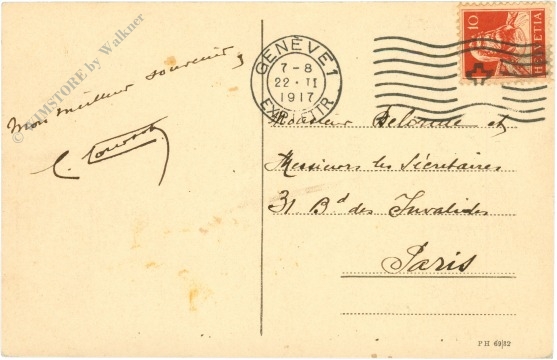 © WIMSTORE by Walkner
Mon meilleur souvenir
GENÈVE 1
7-8
22·II
1917
10
HELVETIA
Monsieur et
Messieurs les Secrétaires
31 Bd des Invalides
Paris
PH 6982